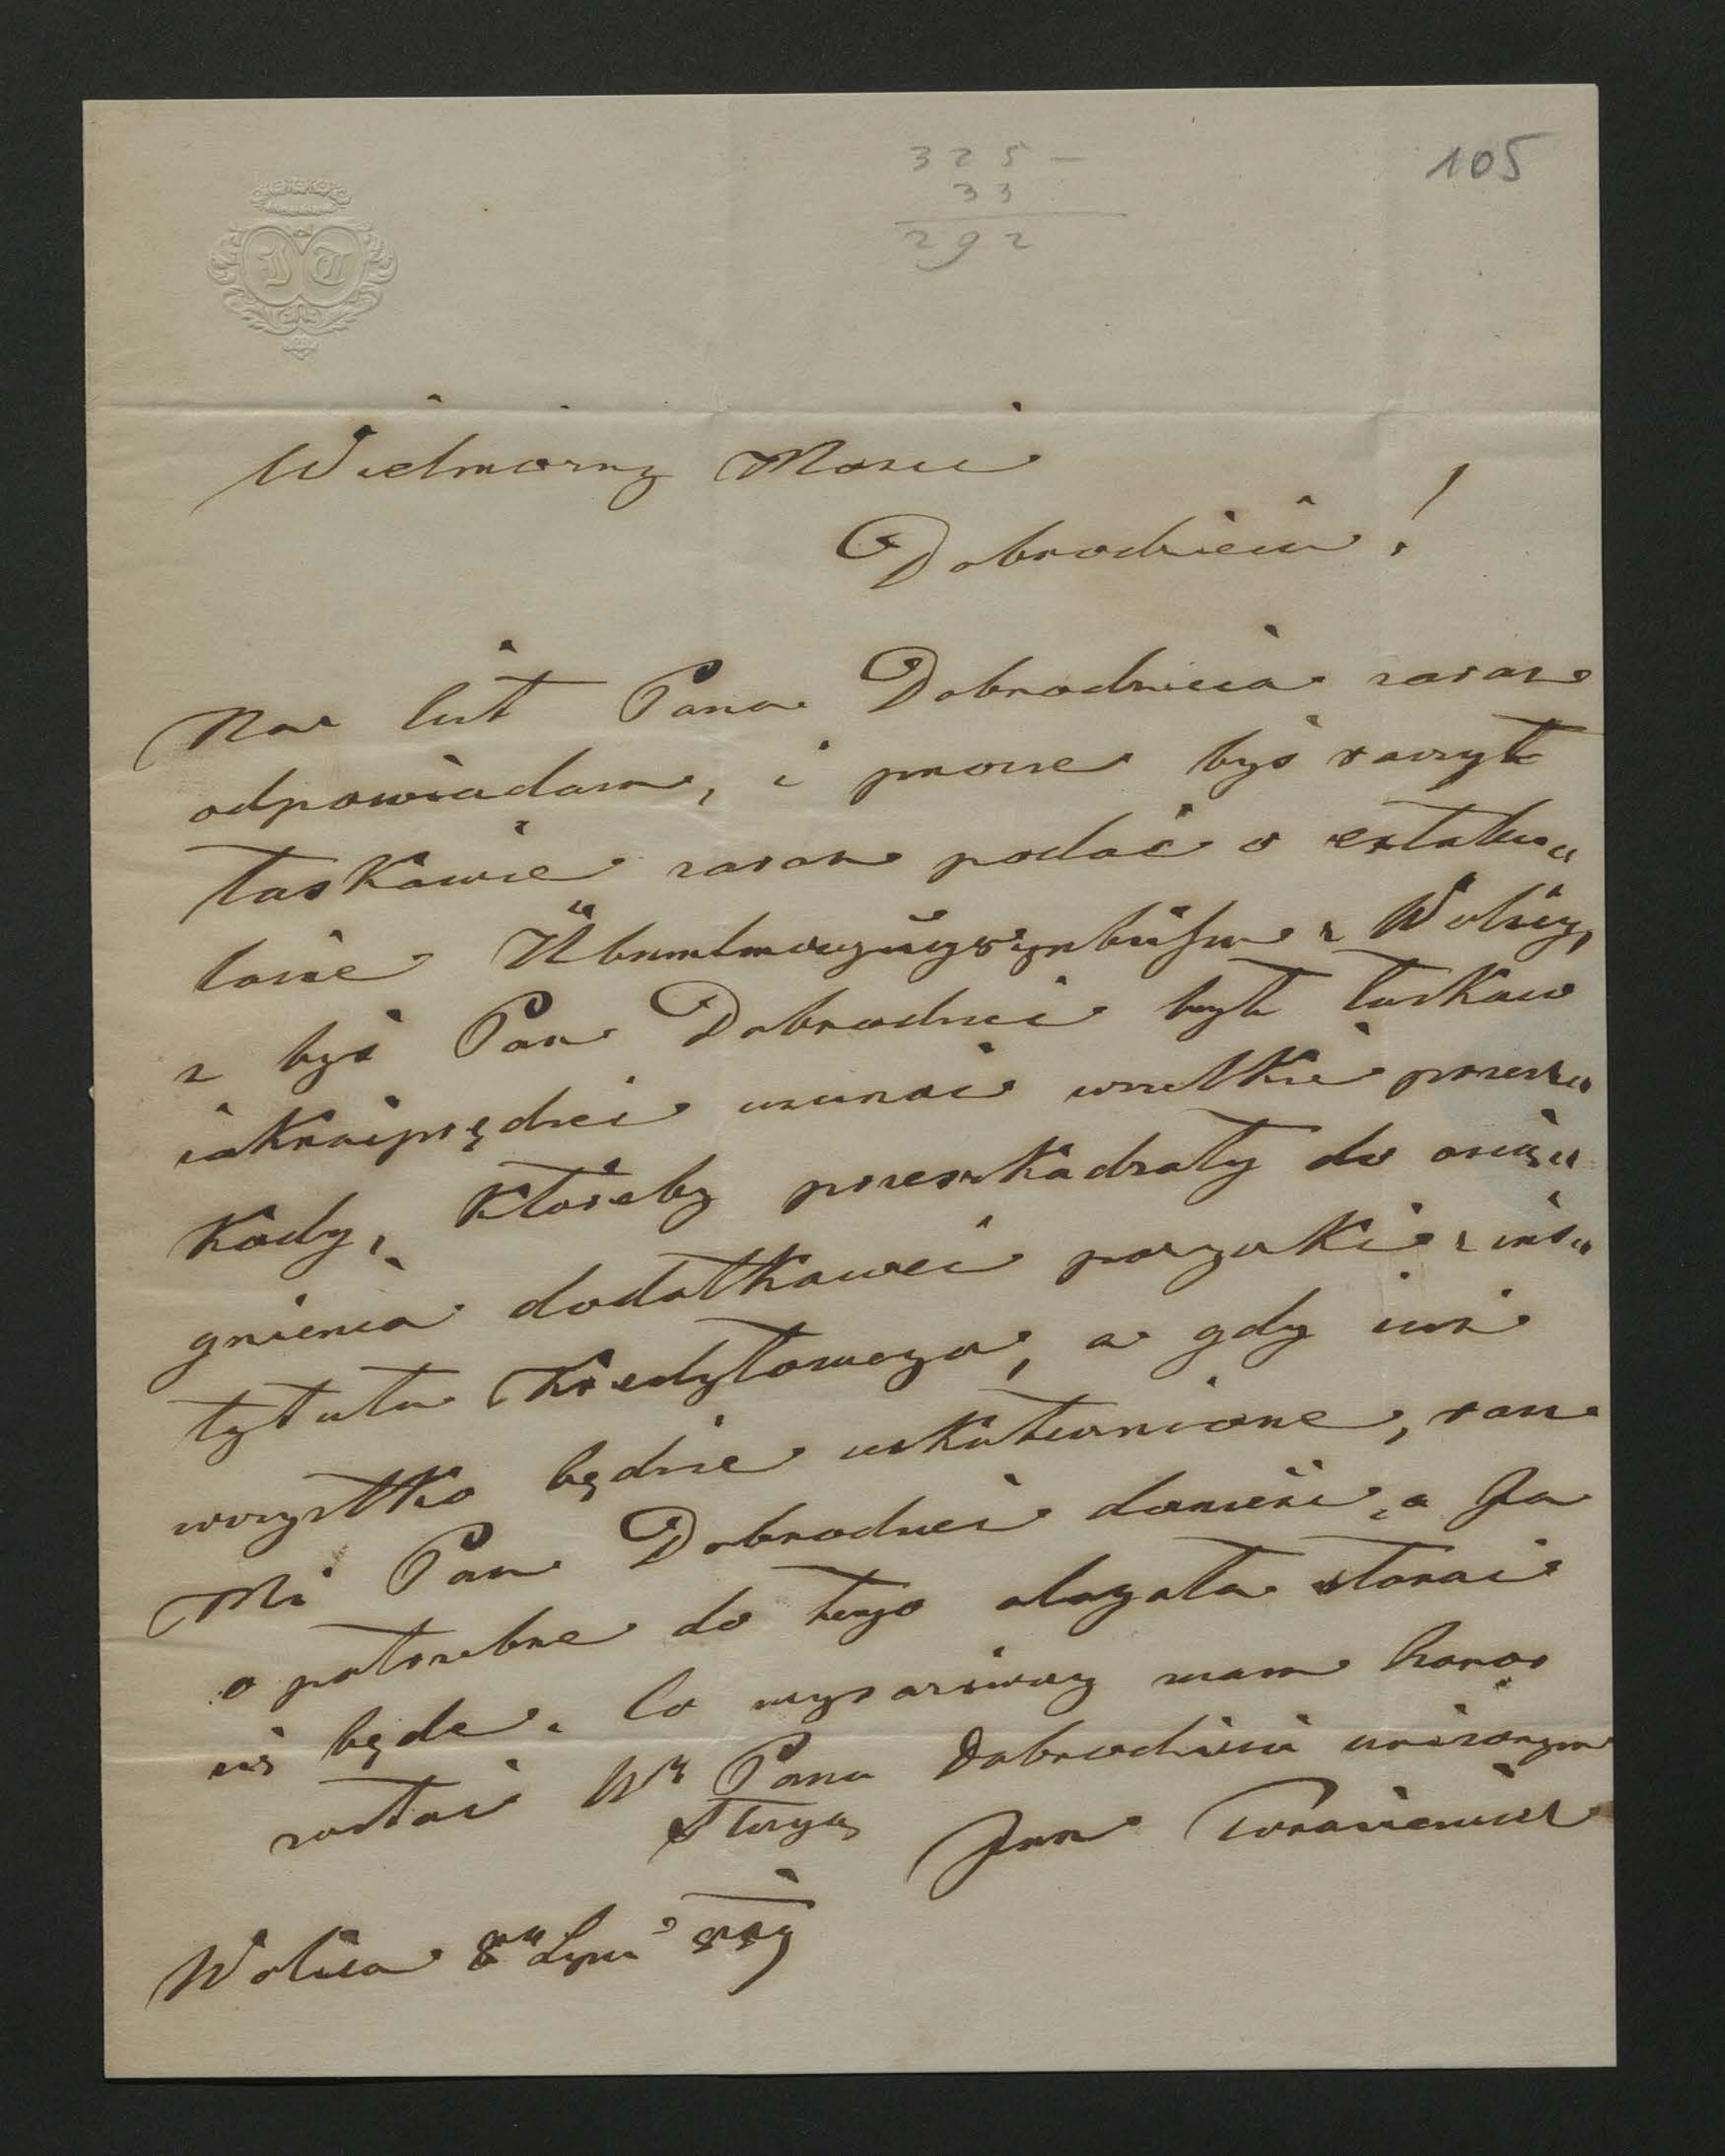 325 —
33
292
105
JT
Wielmożny Mości
Dobrodzieiu!
Na list Pana Dobrodzieia zaraz
odpowiadam, i prosze byś raczył
łaskawie zaraz podać o extabu„
lacie z Wolicy,
z byś Pan Dobrodziei był łaskaw
iaknaiprędzei usunąć wszelkie przesz„
kody, któreby przeszkadzały do osią„
gnienia dodatkowei pożyczki z ins„
tytutu Kredytowego, a gdy iuż
wszystko będzie uskutecznione, racz
Mi Pan Dobrodziei donieść, a Ja
o potrzebne do tego alegata starać
się będe. Co wyraziwszy mam honor
zostać Wg Pana Dobrodzieia uniżonym
sługą Jan
Wolica 8go Lipca